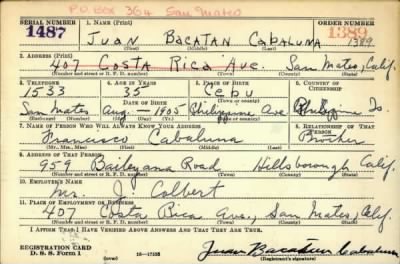 P.O. BOX 364 San Mateo
SERIAL NUMBER 1. NAME (Print) ORDER NUMBER
1487 JUAN BACATAN CABALUNA 1389 1389
(First) (Middle) (Last)
2. ADDRESS (Print)
407 COSTA RICA AVE. SAN MATEO, Calif.
(Number and street or R. F. D. number) (Town) (County) (State)
3. TELEPHONE 4. AGE IN YEARS 5. PLACE OF BIRTH 6. COUNTRY OF CITIZENSHIP
1533 35 CEBU
DATE OF BIRTH
San Mateo Aug. 1905 Philippine Is.
(Exchange) (Number) (Mo.) (Day) (Yr.) (Town or county) (State or country)
7. NAME OF PERSON WHO WILL ALWAYS KNOW YOUR ADDRESS 8. RELATIONSHIP OF THAT PERSON
Francisco Cabaluna Brother
(Mr., Mrs., Miss) (First) (Middle) (Last)
9. ADDRESS OF THAT PERSON
959 Baileyana Road Hillsborough Calif.
(Number and street or R. F. D. number) (Town) (County) (State)
10. EMPLOYER'S NAME
Mrs. J. Colbert
11. PLACE OF EMPLOYMENT OR BUSINESS
407 Costa Rica Ave., San Mateo, Calif.
(Number and street or R. F. D. number) (Town) (County) (State)
I AFFIRM THAT I HAVE VERIFIED ABOVE ANSWERS AND THAT THEY ARE TRUE.
REGISTRATION CARD
D. S. S. Form 1 (over) Juan Bacatan Cabaluna
(Registrant's signature)